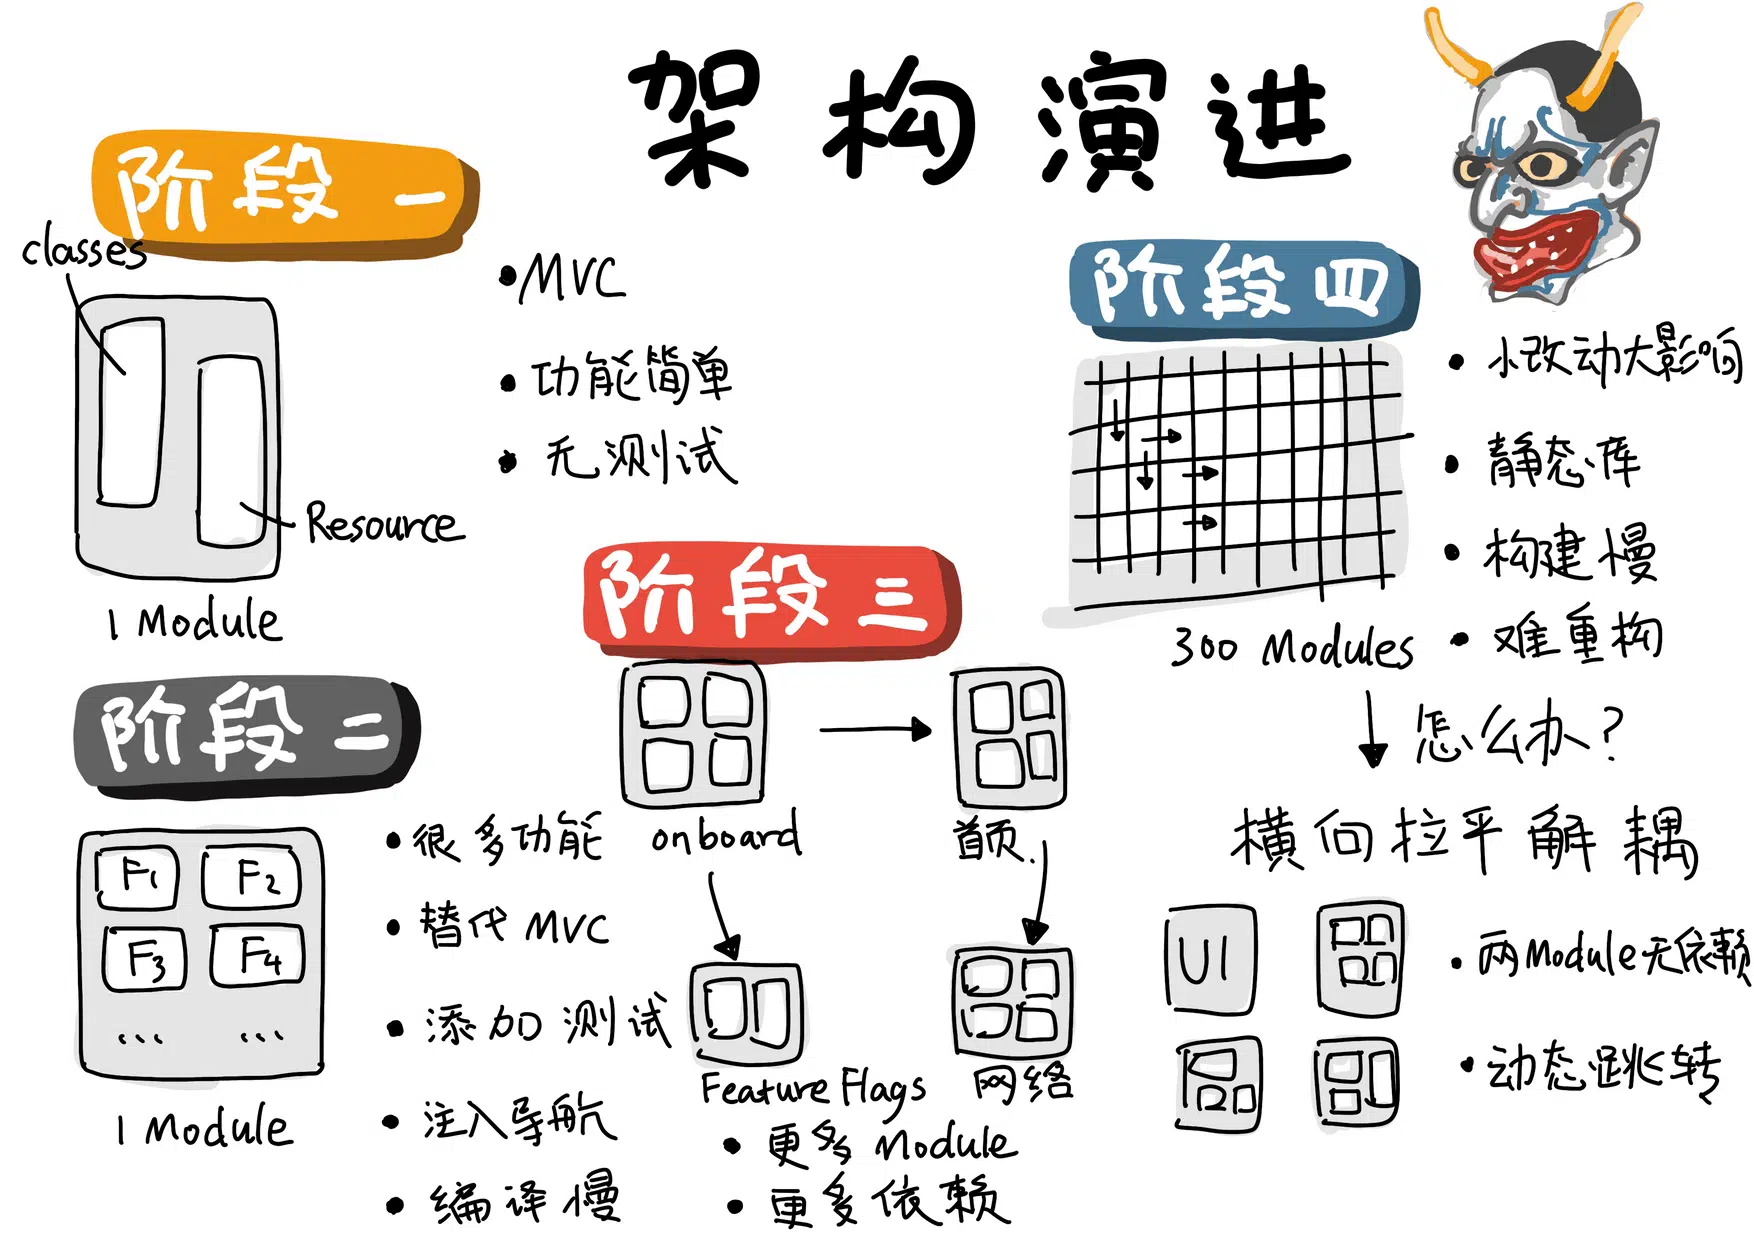 架构演进
阶段一
classes
Resource
1 Module
• MVC
• 功能简单
• 无测试
阶段二
F1 F2
F3 F4
... ...
1 Module
• 很多功能
• 替代MVC
• 添加测试
• 注入导航
• 编译慢
阶段三
onboard
首页.
Feature Flags
网络
• 更多Module
• 更多依赖
阶段四
300 Modules
• 小改动大影响
• 静态库
• 构建慢
• 难重构
怎么办?
横向拉平解耦
UI
• 两Module无依赖
• 动态跳转